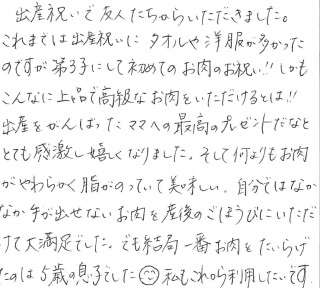 出産祝いで友人たちからいただきました。
これまでは出産祝いに タオルや洋服が多かった
のですが第3子にして初めてのお肉のお祝い!! しかも
こんなに上品で高級なお肉をいただけるとは!!
出産をがんばったママへの最高のプレゼントだなと
とても感激し嬉しくなりました。そして何よりもお肉
がやわらかく脂がのっていて美味しい。自分ではなか
なか手が出せないお肉を産後のごほうびにいただ
けて大満足でした。でも結局一番お肉をたいらげ
たのは5歳の息子でした 私もこれから利用したいです